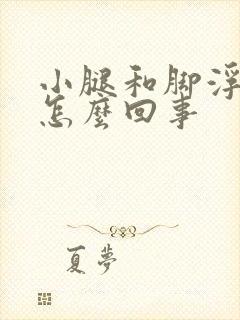 小腿和脚浮
怎麼回事
夏夢